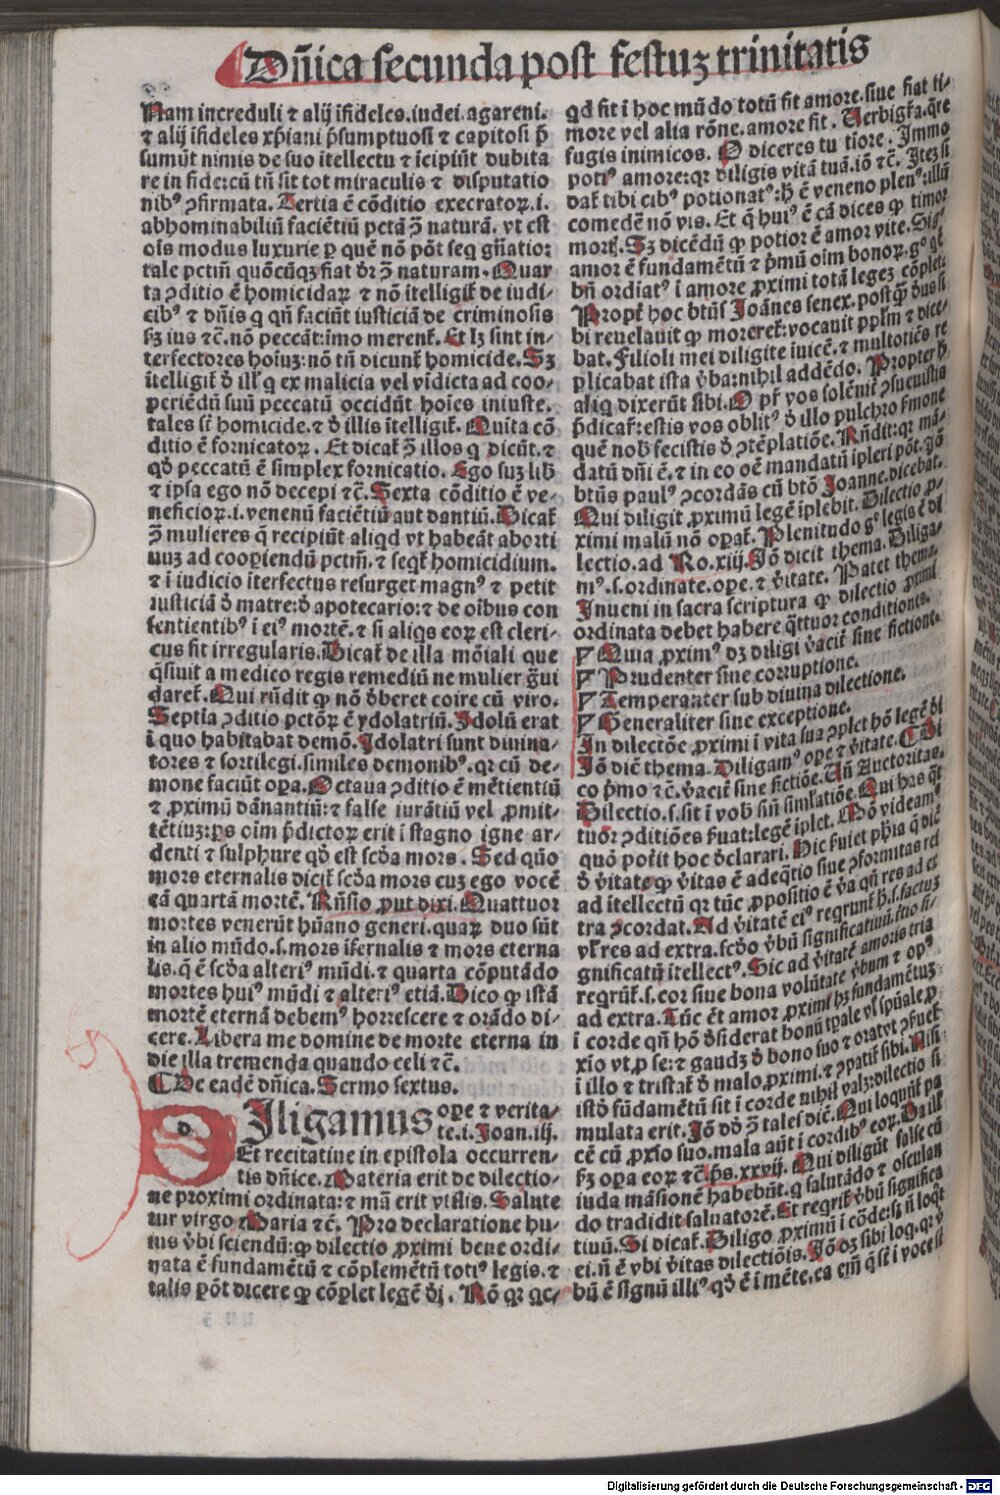 Dñica secunda post festuʒ trinitatis
Nam increduli ⁊ alij ĩfideles.iudei.agareni.
⁊ alij ĩfideles xp̄iani p̄sumptuosi ⁊ capitosi p̄
sumũt nimis de suo ĩtellectu ⁊ ĩcipiũt dubita
re in fide:cũ tñ sit tot miraculis ⁊ disputatio
nibꝰ ꝯfirmata. Tertia ē cõditio execratoꝝ.i.
abhominabiliũ faciẽtiũ pctã ꝯ̄ naturã. vt est
oĩs modus luxurie ꝑ quẽ nõ põt seq̃ gñatio:
tale pctm̃ quõcũqꝫ fiat d̕r ꝯ̄ naturam. Quar
ta ꝯditio ē homicidaꝝ ⁊ nõ ĩtelligit̃ de iudi-
cibꝰ ⁊ dñis q̃ qñ faciũt iusticiã de criminosis
ẜʒ ius ⁊c̄.nõ peccãt:imo merent̃. Et lʒ sint in-
terfectores hoĩuʒ:nõ tñ dicunt̃ homicide. Sʒ
ĩtelligit̃ d̕ ill̕ q̃ ex malicia vel vĩdicta ad coo-
periẽdũ suũ peccatũ occidũt hoĩes iniuste.
tales sũt homicide.⁊ d̕ illis ĩtelligit̃. Quĩta cõ
ditio ē fornicatoꝝ. Et dicat̃ ꝯ̄ illos q̃ dicũt.⁊
qd̕ peccatũ ē simplex fornicatio. Ego suʒ lib̕
⁊ ipsa ego nõ decepi ⁊c̄. Sexta cõditio ē ve-
neficioꝝ.i.venenũ faciẽtiũ aut dantiũ. Dicat̃
ꝯ̄ mulieres q̃ recipiũt aliqd vt habeãt aborti
uuʒ ad coopiendũ pctm̃.⁊ seqt̃ homicidium.
⁊ i iudicio ĩterfectus resurget magnꝰ ⁊ petit
iusticiã d̕ matre:d̕ apotecario:⁊ de oĩbus con
sentientibꝰ i eiꝰ mortẽ.⁊ si aliqs eoꝝ est cleri-
cus fit irregularis. Dicat̃ de illa mõiali que
q̃siuit a medico regis remediũ ne mulier g̃ui
daret̃. Qui rñdit ꝙ nõ d̕beret coire cũ viro.
Septĩa ꝯditio pctõꝝ ē ydolatriũ. Idolũ erat
ĩ quo habitabat demõ. Idolatri sunt diuina-
tores ⁊ sortilegi.similes demonibꝰ.qꝛ cũ de-
mone faciũt oꝑa. Octaua ꝯditio ē mẽtientiũ
⁊ ꝓximũ dãnantiũ:⁊ false iurãtiũ vel ꝓmit-
tẽtiuʒ:ps oĩm p̄dictoꝝ erit ĩ stagno igne ar-
denti ⁊ sulphure qd̕ est scd̕a mors. Sed qũo
mors eternalis dicit̃ scd̕a mors cuʒ ego vocẽ
eã quartã mortẽ. Rñsio ꝓut dixi. Quattuor
mortes venerũt hũano generi.quaꝝ duo sũt
in alio mũdo.s.mors ĩfernalis ⁊ mors eterna
lis.q̃ ē scd̕a alteriꝰ mũdi.⁊ quarta cõputãdo
mortes huiꝰ mũdi ⁊ alteriꝰ etiã. Dico ꝙ istã
mortẽ eternã debemꝰ horrescere ⁊ orãdo di-
cere. Libera me domine de morte eterna in
die illa tremenda quando celi ⁊c̄.
¶De eadẽ dñica. Sermo sextus.
Diligamus oꝑe ⁊ verita-
te.i.Joan.iij.
Et recitatiue in epistola occurren-
tis dñice. Materia erit de dilectio-
ne proximi ordinata:⁊ mã erit vtilis. Salute
tur virgo Maria ⁊c̄. Pro declaratione hu-
ius v̕bi sciendũ:ꝙ dilectio ꝓximi bene ordi-
nata ē fundamẽtũ ⁊ cõplemẽtũ totiꝰ legis.⁊
talis põt dicere ꝙ cõplet legẽ d̕i. Rõ qꝛ qc-
qd fit i hoc mũdo totũ fit amore.siue fiat ti-
more vel alia rõne.amore fit. Verbigr̃a.q̃re
fugis inimicos. O diceres tu tĩore. Immo
potiꝰ amore:qꝛ diligis vitã tuã.iõ ⁊c̄. Iteʒ si
dat̃ tibi cibꝰ potionatꝰ:h̕ ē veneno plenꝰ:illũ
comedẽ nõ vis. Et q̃ huiꝰ ē cã dices ꝙ timor
mort̃. Sʒ dicẽdũ ꝙ potior ē amor vite. Sigꝰ
amor ē fundamẽtũ ⁊ p̃mũ oĩm bonoꝝ.gꝰ qͥ
bñ ordiatꝰ ĩ amore ꝓximi totã legeʒ cõplet:
Propt̃ hoc btũs Joãnes senex.postq̃ʒ dñs si
bi reuelauit ꝙ moreret̃:vocauit ppl̃m ⁊ dice-
bat. Filioli mei diligite ĩuicẽ.⁊ multotiẽs re
plicabat ista v̕ba:nihil addẽdo. Propter h̕
aliq̃ dixerũt sibi. O pr̃ vos solẽnit̃ ꝯsueuistis
p̄dicar̃:estis vos oblitꝰ d̕ illo pulchro ẜmone
quẽ nob̕ fecistis d̕ ꝯtẽplatiõe. Rñdit:qꝛ mã-
datũ dñi ē.⁊ in eo oẽ mandatũ ĩpleri põt. Iõ
btũs paulꝰ ꝯcordãs cũ btõ Joanne.dicebat.
Qui diligit ꝓximũ legẽ ĩplebit. Dilectio ꝓ-
ximi malũ nõ oꝑat̃. Plenitudo gꝰ legis ē di
lectio.ad Ro.xiij. Iõ dicit thema. Diliga-
mꝰ.s.ordinate.oꝑe.⁊ v̕itate. Patet thema.
Inueni in sacra scriptura ꝙ dilectio ꝓximi
ordinata debet habere q̃ttuor conditionis.
Quia ꝓximꝰ dʒ diligi v̕acit̃ sine fictione.
Prudenter sine corruptione.
Temperanter sub diuina dilectione.
Generaliter sine exceptione.
In dilectõe ꝓximi i vita sua ꝯplet hõ legẽ d̕i
Iõ dic̃ thema. Diligamꝰ oꝑe ⁊ v̕itate. ¶Di
co p̃mo ⁊c̄.v̕acit̃ sine fictiõe. Uñ Auctoritas.
Dilectio.s.sit i vob̕ sñ siml̃atiõe. Qui has q̃t
tuor ꝯditiões ẜuat:legẽ ĩplet. Mõ videamꝰ
quõ pot̃it hoc d̕clarari. Hic ẜuiet ph̃ia q̃ dic̃
d̕ v̕itate ꝙ v̕itas ē adeq̃tio siue ꝯformitas rei
ad itellectũ qꝛ tũc ꝓpositio ē v̕a qñ res ad ex
tra ꝯcordat. Ad v̕itatẽ eiꝰ reqrunt̃ h̕.s.factuʒ
vl̃ res ad extra.scd̕o v̕bũ significatiuũ.tertio si-
gnificatũ itellectꝰ. Sic ad v̕itatẽ amoris tria
reqrũt̃.s.cor siue bona volũtate v̕bum ⁊ opꝰ
ad extra. Tũc ē amor ꝓximi hʒ fundamẽtuʒ
i corde qñ hõ d̕siderat bonũ tp̃ale vl̃ spũale ꝓ
xĩo vt ꝓ se:⁊ gaudʒ d̕ bono suo ⁊ oratꝰ ꝓfect̃
i illo ⁊ tristat̃ d̕ malo ꝓximi.⁊ ꝯpatit̃ sibi. Nisi
istd̕ fũdamẽtũ sit i corde nihil valʒ:dilectio si
mulata erit. Iõ dd̕ ꝯ̄ tales dic̃. Qui loquũt̃ pa
cẽ cũ ꝓxĩo suo.mala aũt i cordibꝰ eoꝝ. Da ill̕
ẜʒ oꝑa eoꝝ ⁊c̄.ps.xxvij. Qui diligũt false cũ
iuda mãsionẽ habebũt.q̃ salutãdo ⁊ osculan
do tradidit saluatorẽ. Et reqrit̃ v̕bũ significa
tiuũ. Si dicat̃. Diligo ꝓximũ i cõde:si ñ loqt̃
ei.ñ ē vbi v̕itas dilectiõis. Iõ dʒ sibi loq.qꝛ v̕
bũ ē signũ illiꝰ qd̕ ē i mẽte.ea em̃ q̃ sĩt i voce sĩt
Digitalisierung gefördert durch die Deutsche Forschungsgemeinschaft - DFG